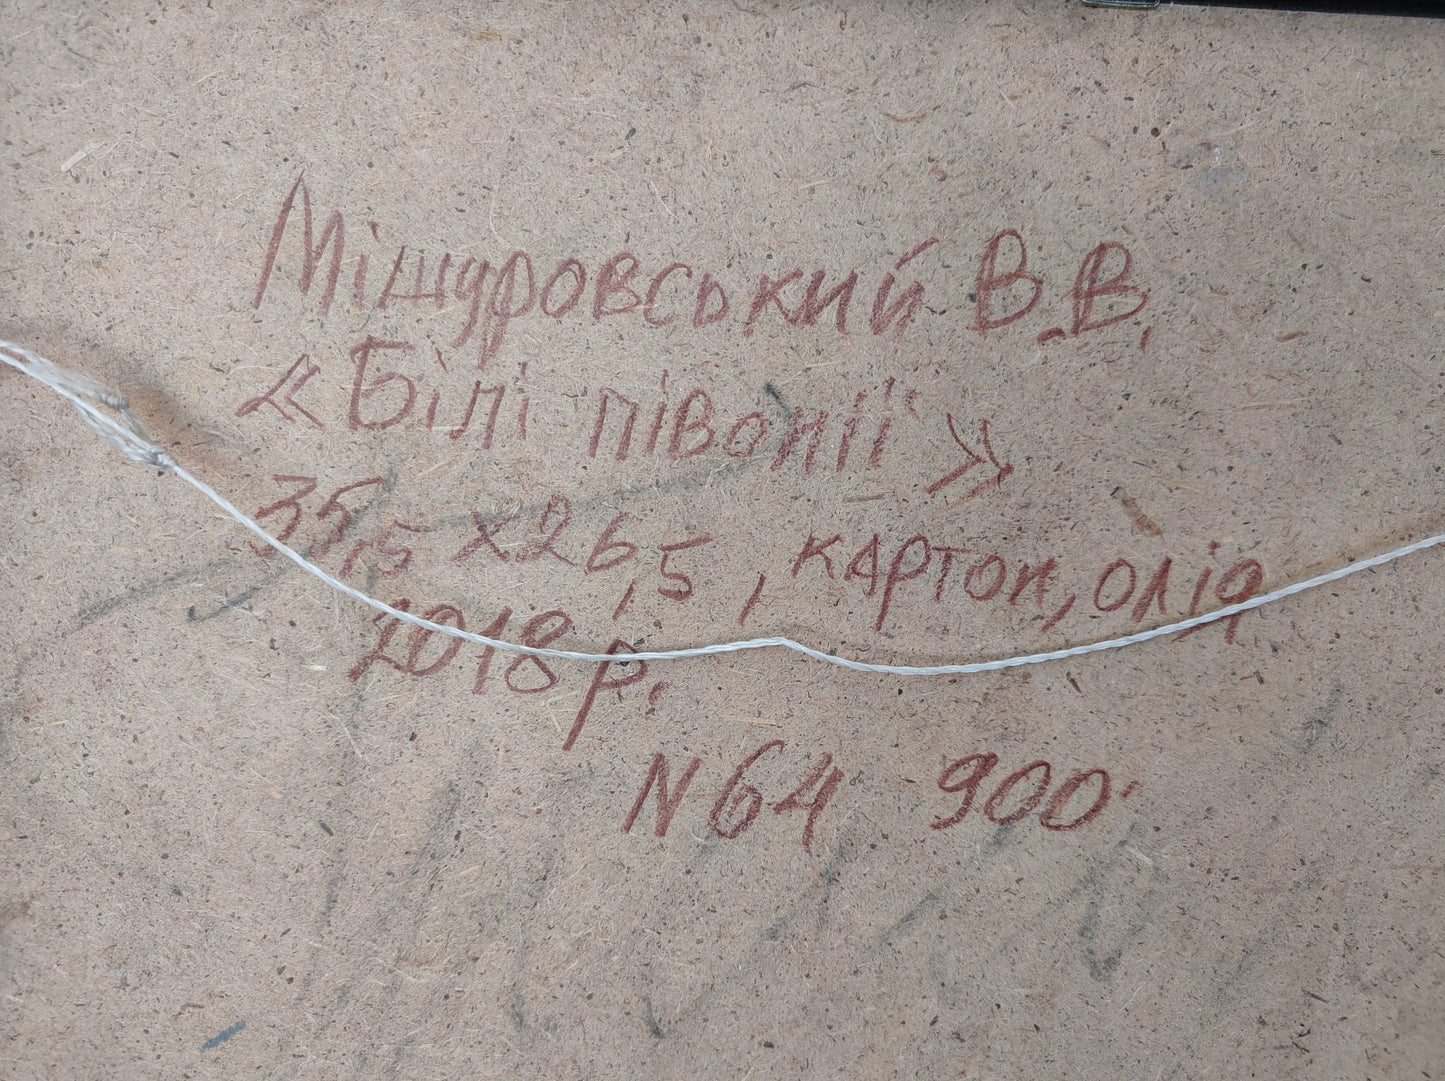 Мішуровський В.В.
«Білі півонії»
35,5 х 26,5, картон, олія
2018 р.
N 64 900